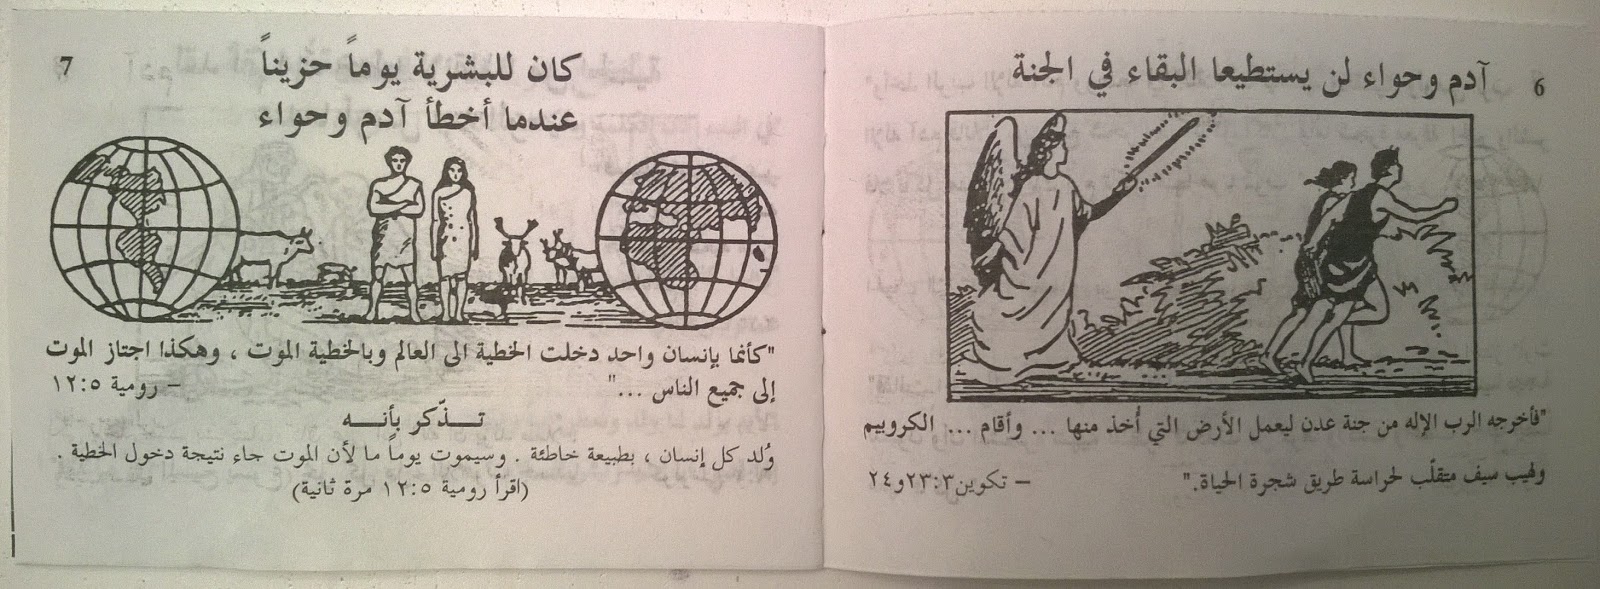 6
آدم وحواء لن يستطيعا البقاء في الجنة
"فأخرجه الرب الإله من جنة عدن ليعمل الأرض التي أُخذ منها ... وأقام ... الكروبيم
ولهيب سيف متقلّب لحراسة طريق شجرة الحياة." – تكوين٢٣:٣و٢٤
7
كان للبشرية يوماً حزيناً
عندما أخطأ آدم وحواء
"كأنما بإنسان واحد دخلت الخطية الى العالم وبالخطية الموت ، وهكذا اجتاز الموت
إلى جميع الناس ..." – رومية ١٢:٥
تـــذّكر بأنـــه
وُلد كل إنسان ، بطبيعة خاطئة . وسيموت يوماً ما لأن الموت جاء نتيجة دخول الخطية .
(اقرأ رومية ١٢:٥ مرة ثانية)